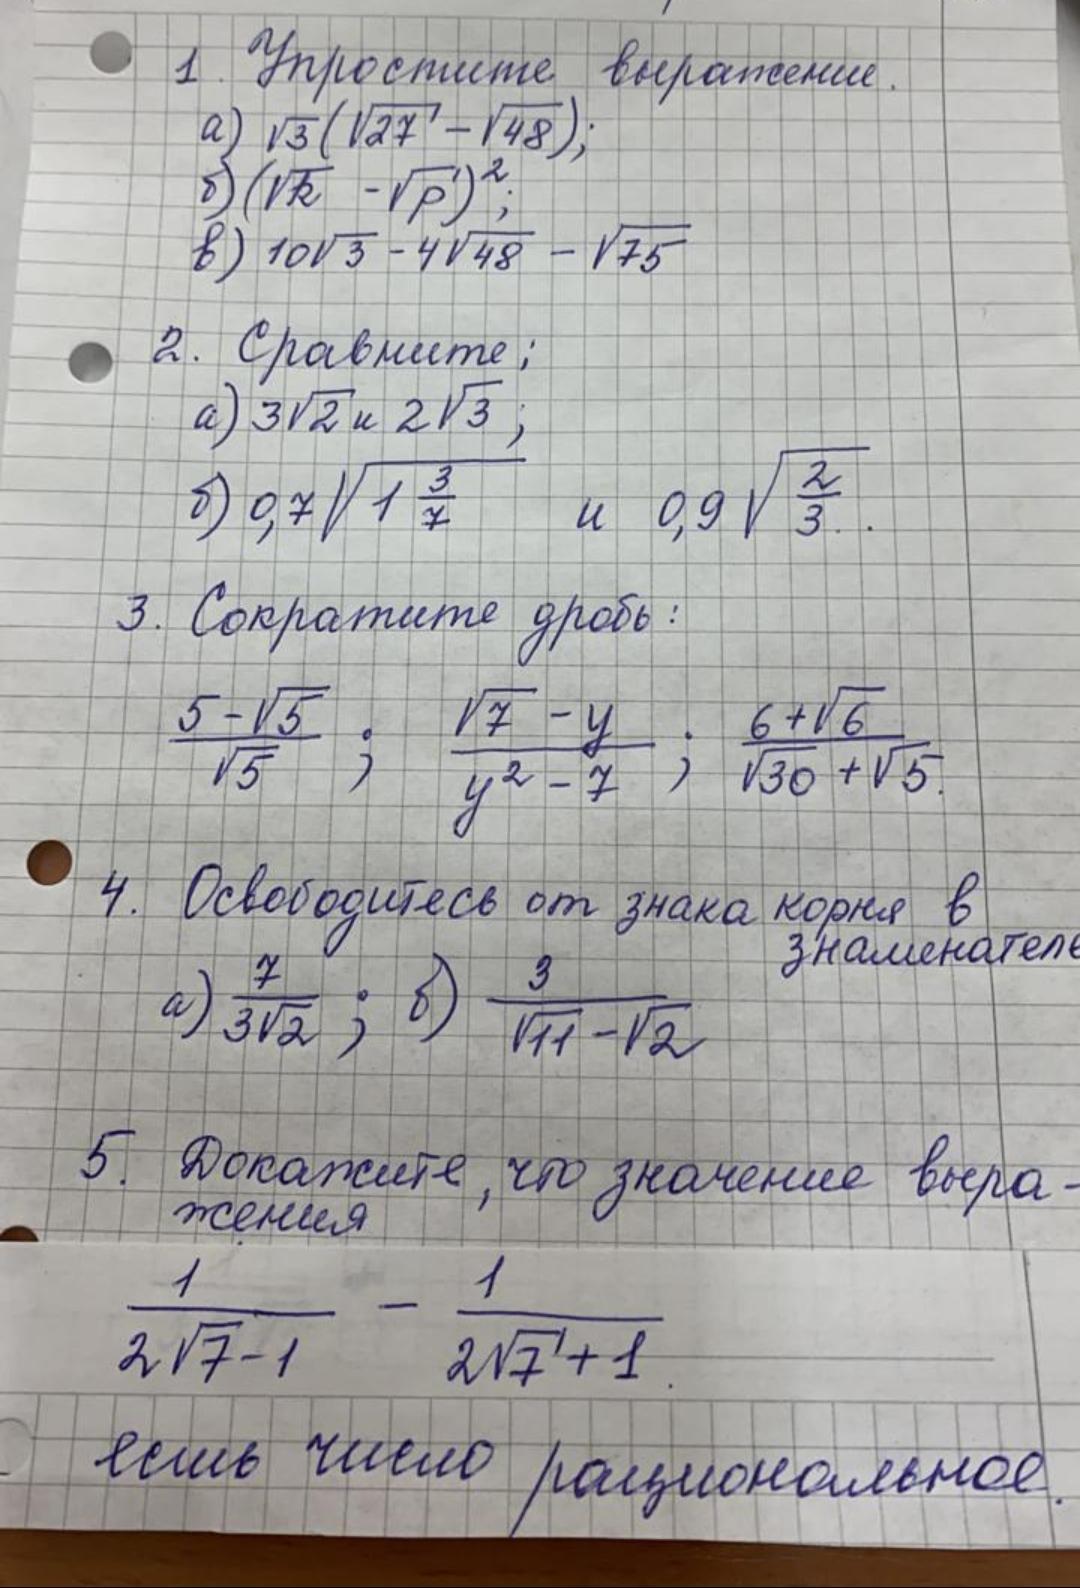 1. Упростите выражение.
а) √3(√27 - √48);
б) (√k - √p)²;
в) 10√3 - 4√48 - √75
2. Сравните:
а) 3√2 и 2√3;
б) 0,7√(1 3/7) и 0,9√(2/3).
3. Сократите дробь:
(5-√5)/√5; (√7 - y)/(y² - 7); (6+√6)/(√30 + √5).
4. Освободитесь от знака корня в
знаменателе
а) 7/(3√2); б) 3/(√11 - √2)
5. Докажите, что значение выра-
жения
1/(2√7 - 1) - 1/(2√7 + 1).
есть число рациональное.